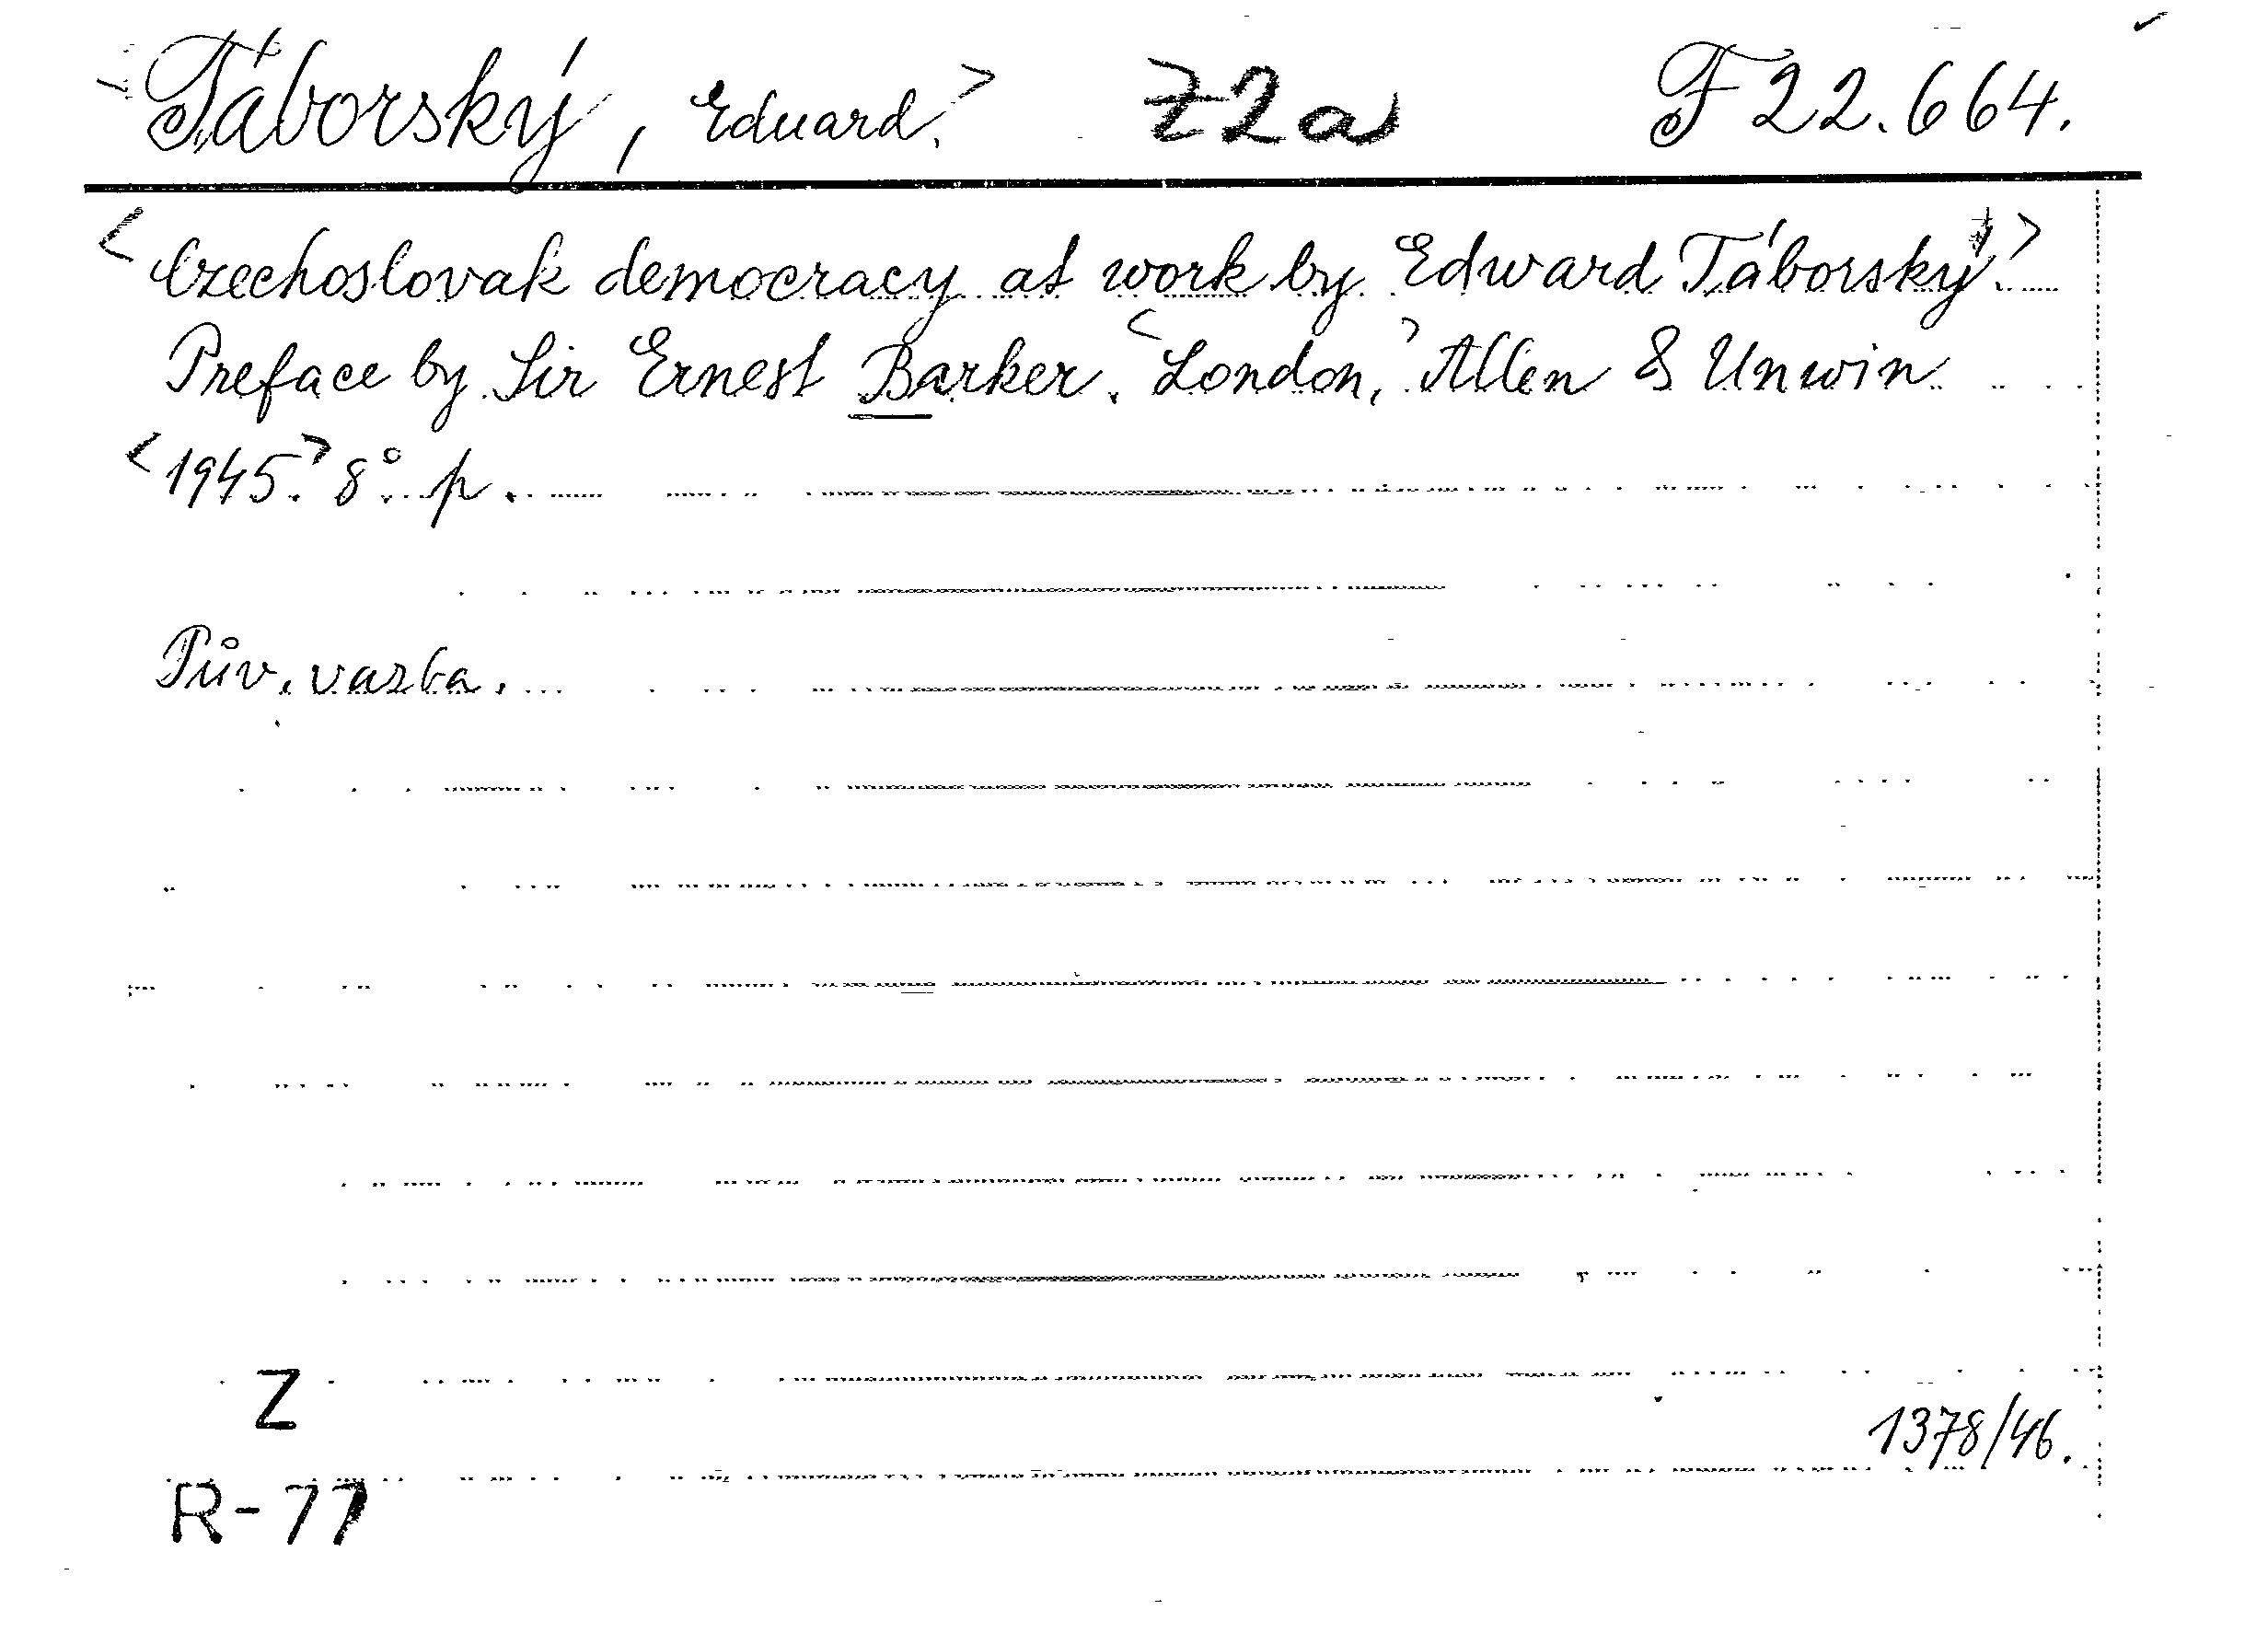 <Táborský, Eduard.> Z2a F 22.664.
<Czechoslovak democracy at work by Edward Táborský.>
Preface by Sir Ernest Barker. <London,> Allen & Unwin
<1945.> 8° p.
Pův. vazba.
Z
1378/46.
R-77